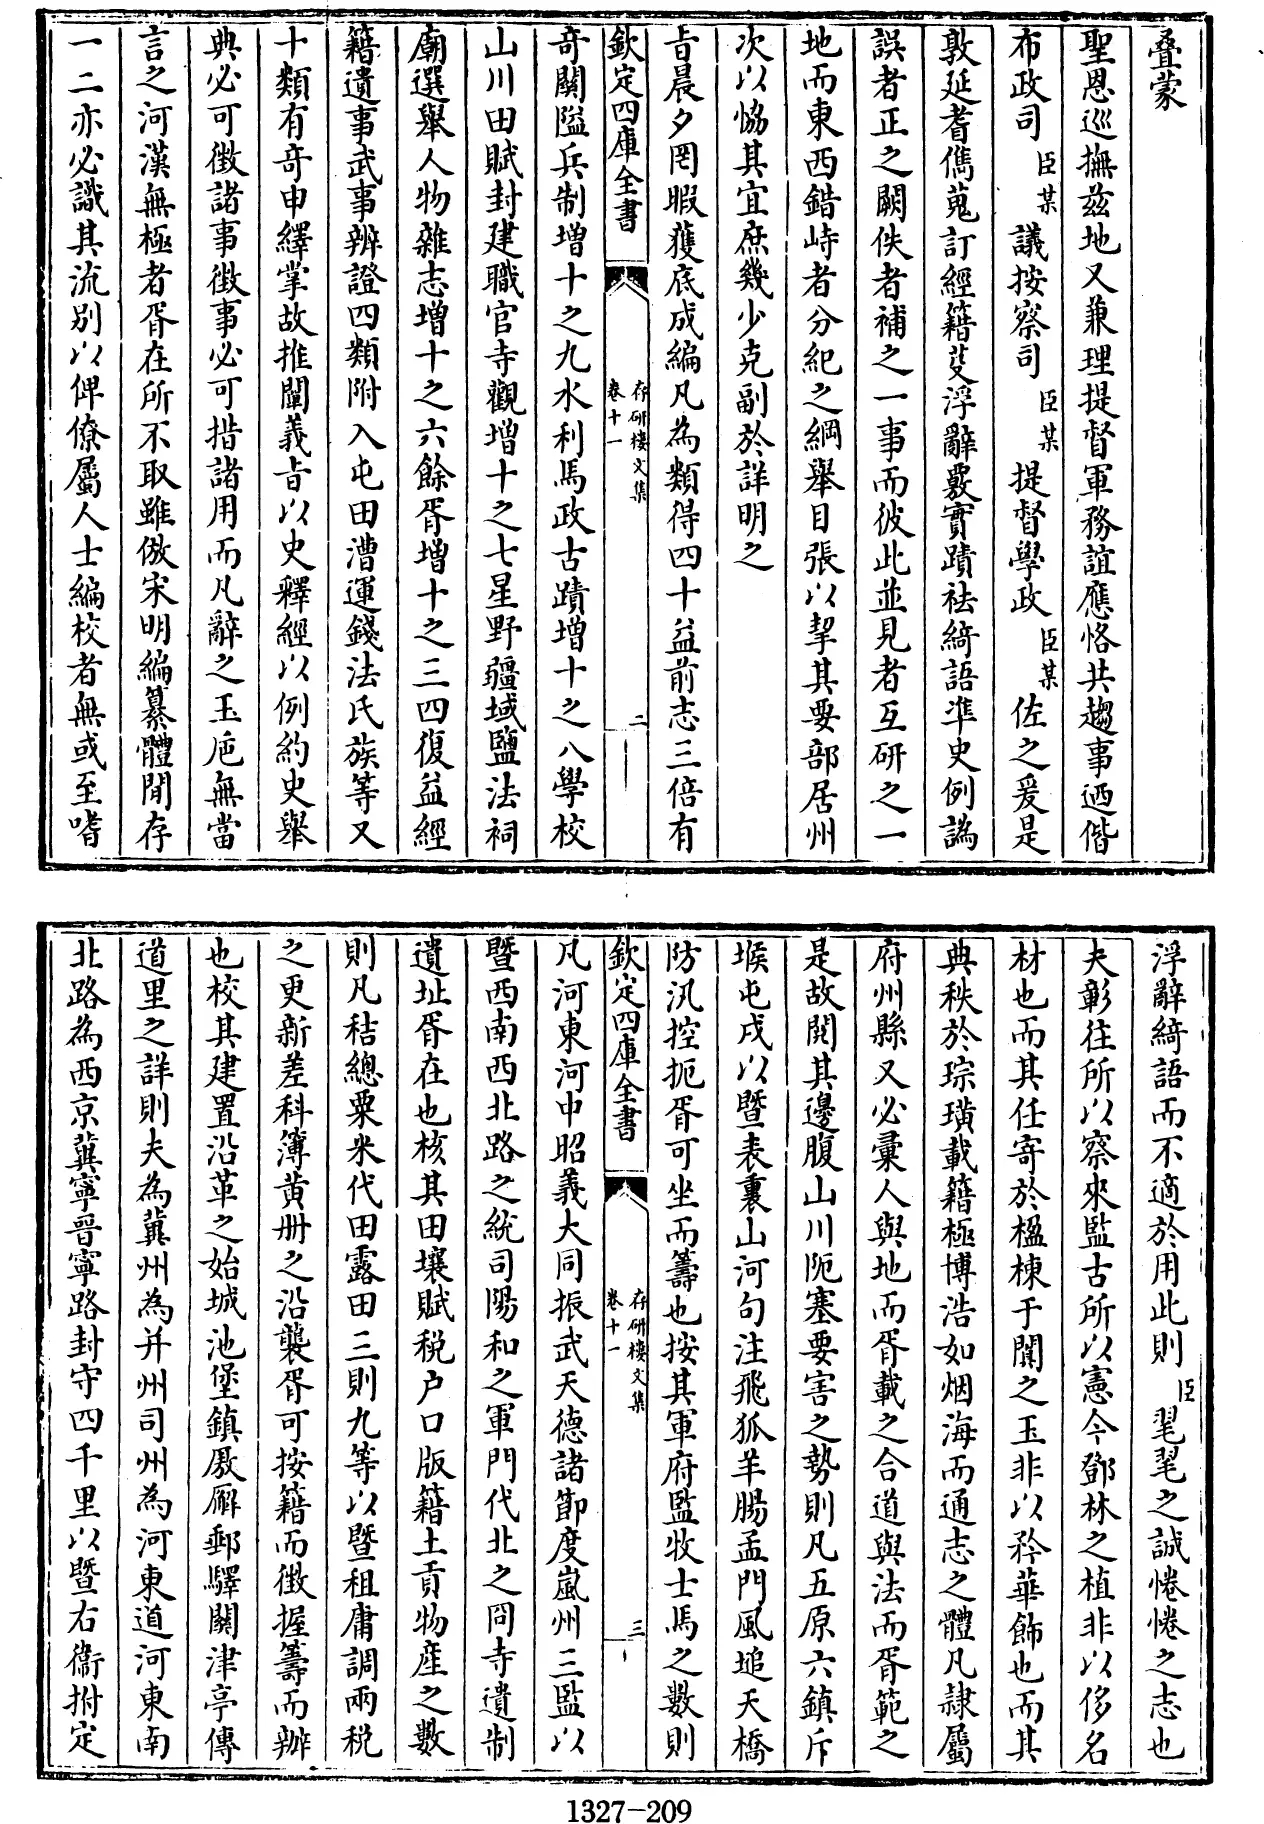 叠蒙
聖恩巡撫兹地又兼理提督軍務誼應恪共趨事迺偕
布政司臣某議按察司臣某提督學政臣某佐之爰是
敦延耆儁蒐訂經籍芟浮辭覈實蹟袪綺語準史例譌
誤者正之闕佚者補之一事而彼此並見者互研之一
地而東西錯峙者分紀之綱舉目張以挈其要部居州
次以恊其宜庶幾少克副於詳明之
㫖晨夕罔暇獲底成編凡為類得四十益前志三倍有
欽定四庫全書
存研樓文集
卷十一
二
奇關隘兵制增十之九水利馬政古蹟增十之八學校
山川田賦封建職官寺觀增十之七星野疆域鹽法祠
廟選舉人物雜志增十之六餘胥增十之三四復益經
籍遺事武事辨證四類附入屯田漕運錢法氏族等又
十類有奇申繹掌故推闡義㫖以史釋經以例約史舉
典必可徵諸事徵事必可措諸用而凡辭之玉巵無當
言之河漢無極者胥在所不取雖倣宋明編纂體閒存
一二亦必識其流别以俾僚屬人士編校者無或至嗜
浮辭綺語而不適於用此則臣毣毣之誠惓惓之志也
夫彰往所以察來監古所以憲今鄧林之植非以侈名
材也而其任寄於楹棟于闐之玉非以矜華飾也而其
典秩於琮璜載籍極博浩如烟海而通志之體凡隷屬
府州縣又必彙人與地而胥載之合道與法而胥範之
是故閱其邊腹山川阨塞要害之勢則凡五原六鎮斥
堠屯戍以暨表裏山河句注飛狐羊腸孟門風塠天橋
防汛控扼胥可坐而籌也按其軍府監牧士馬之數則
欽定四庫全書
存研樓文集
卷十一
三
凡河東河中昭義大同振武天德諸節度嵐州三監以
暨西南西北路之統司陽和之軍門代北之冏寺遺制
遺址胥在也核其田壤賦税户口版籍土貢物産之數
則凡秸總粟米代田露田三則九等以暨租庸調兩税
之更新差科簿黄册之沿襲胥可按籍而徵握籌而辦
也校其建置沿革之始城池堡鎮厫廨郵驛關津亭傳
道里之詳則夫為冀州為并州司州為河東道河東南
北路為西京冀寧晉寧路封守四千里以暨右衞拊定
1327-209